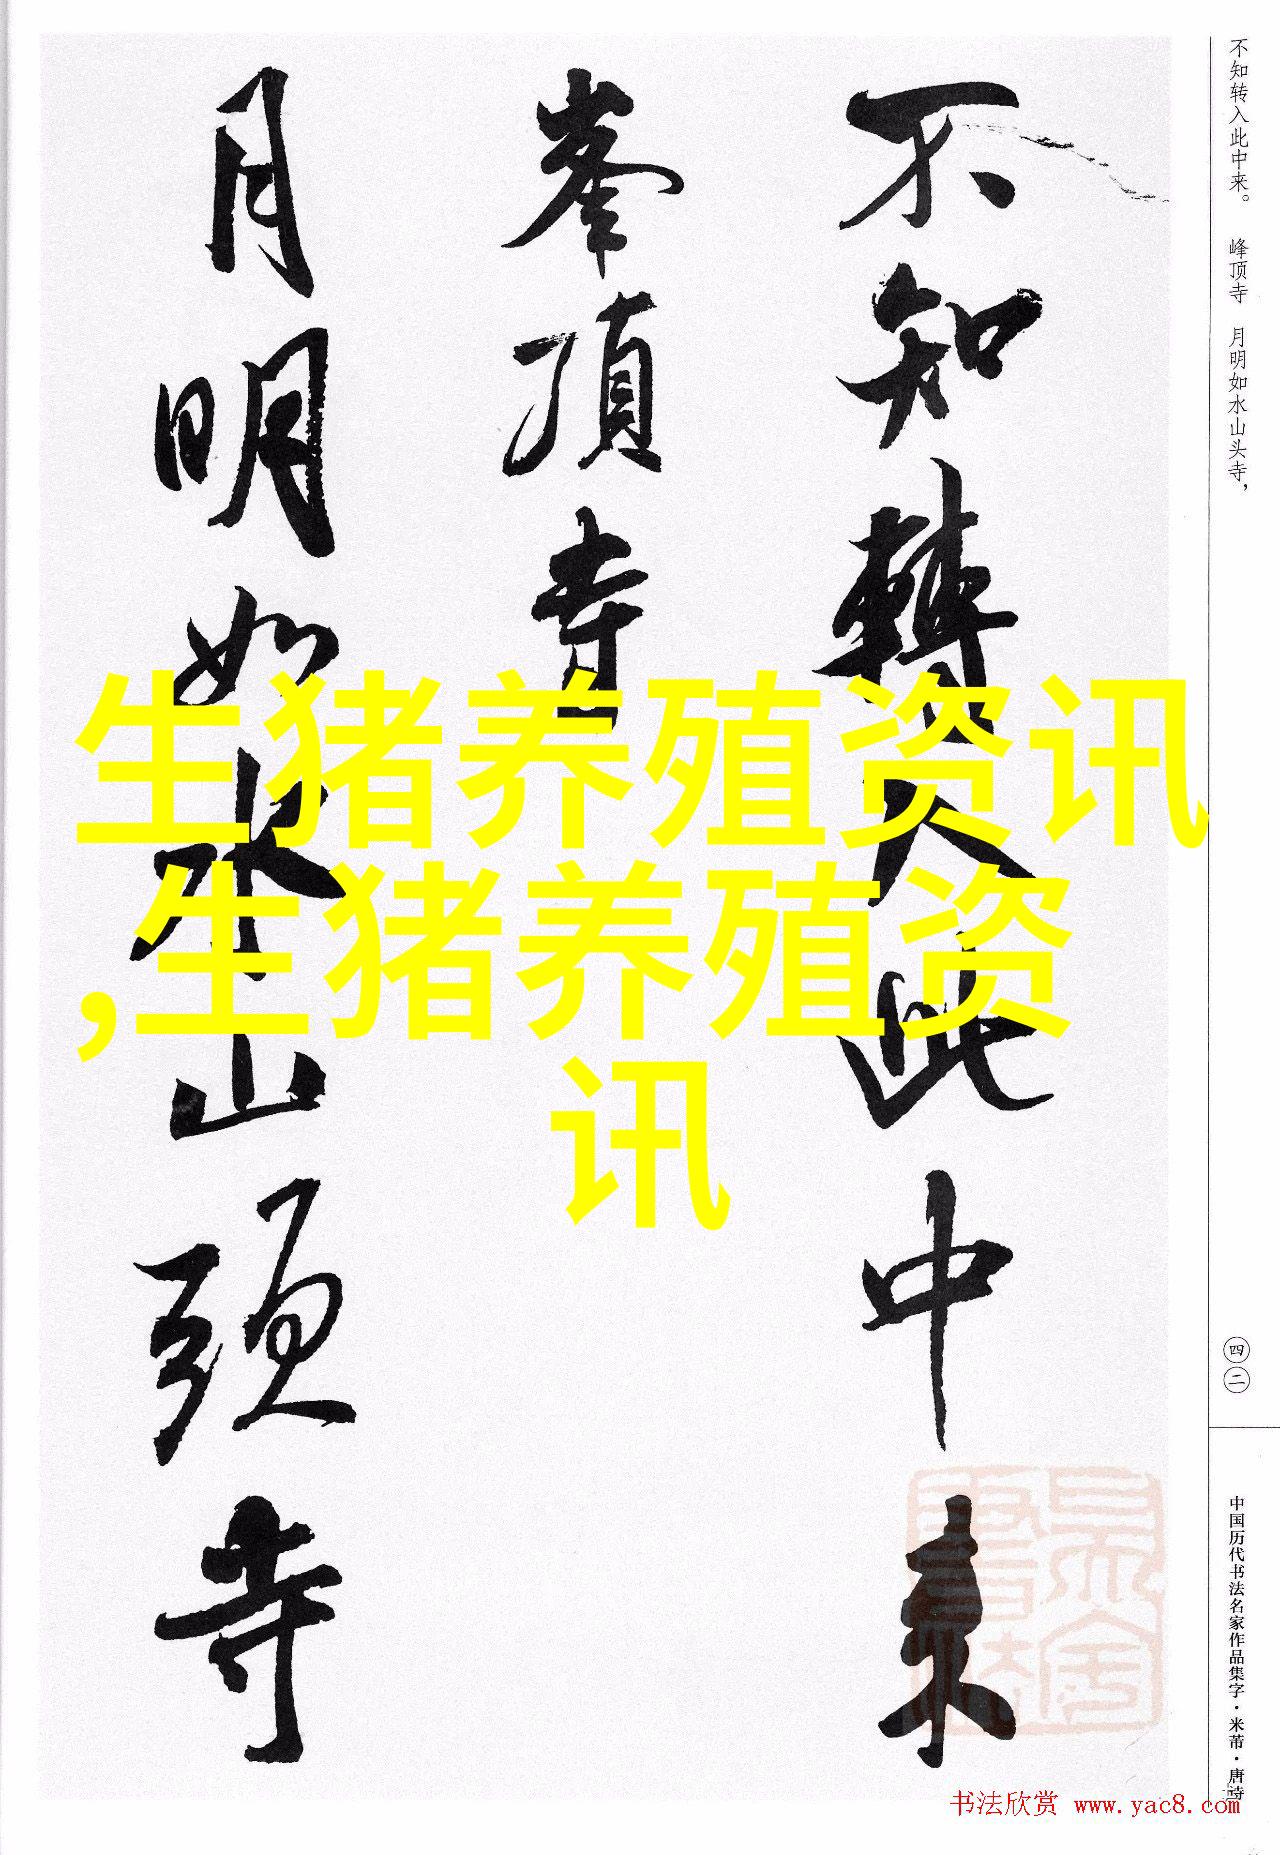 不知转入此中来。 峰顶寺 月明如水山头寺，
不知轉入此中来
峯頂寺
月明如水山頭寺
生猪养殖资讯
,生猪养殖资
讯
四二
中国历代书法名家作品集字·米芾·唐诗
书法欣赏 www.yac8.com